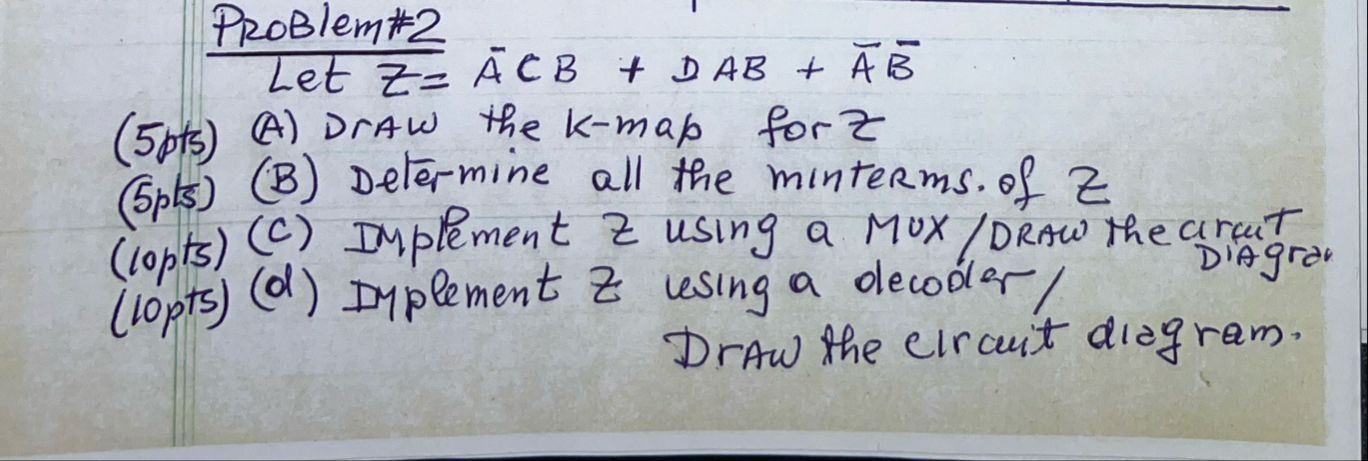 PROBlem#2
Let Z= A̅CB + DAB + A̅B̅
(5pts) (A) DrAW the K-map for Z
(5pts) (B) Determine all the minterms. of Z
(10pts) (C) Implement Z using a MUX /DRAW the circuit
DIAgra
(10pts) (d) Implement Z using a decoder/
DrAW the circuit diagram.